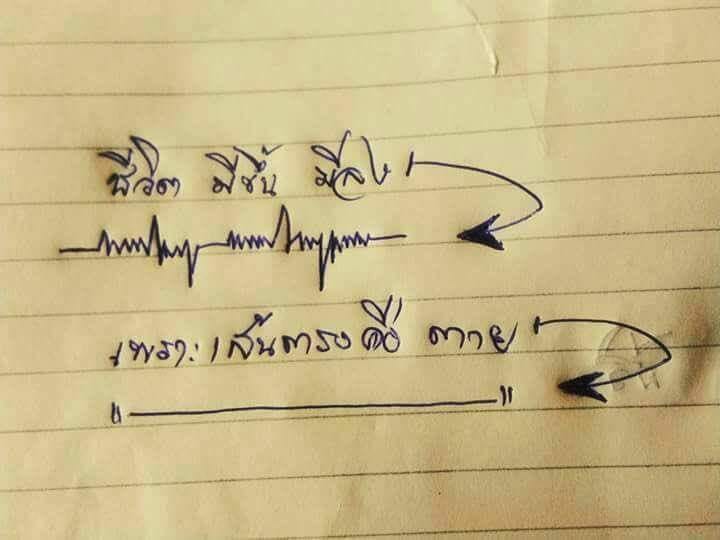 ชีวิต มีขึ้น มีลง
เพราะเส้นตรงคือ ตาย
"
"